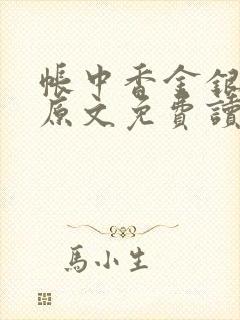 帳中香金銀
原文免費讀
馬小生